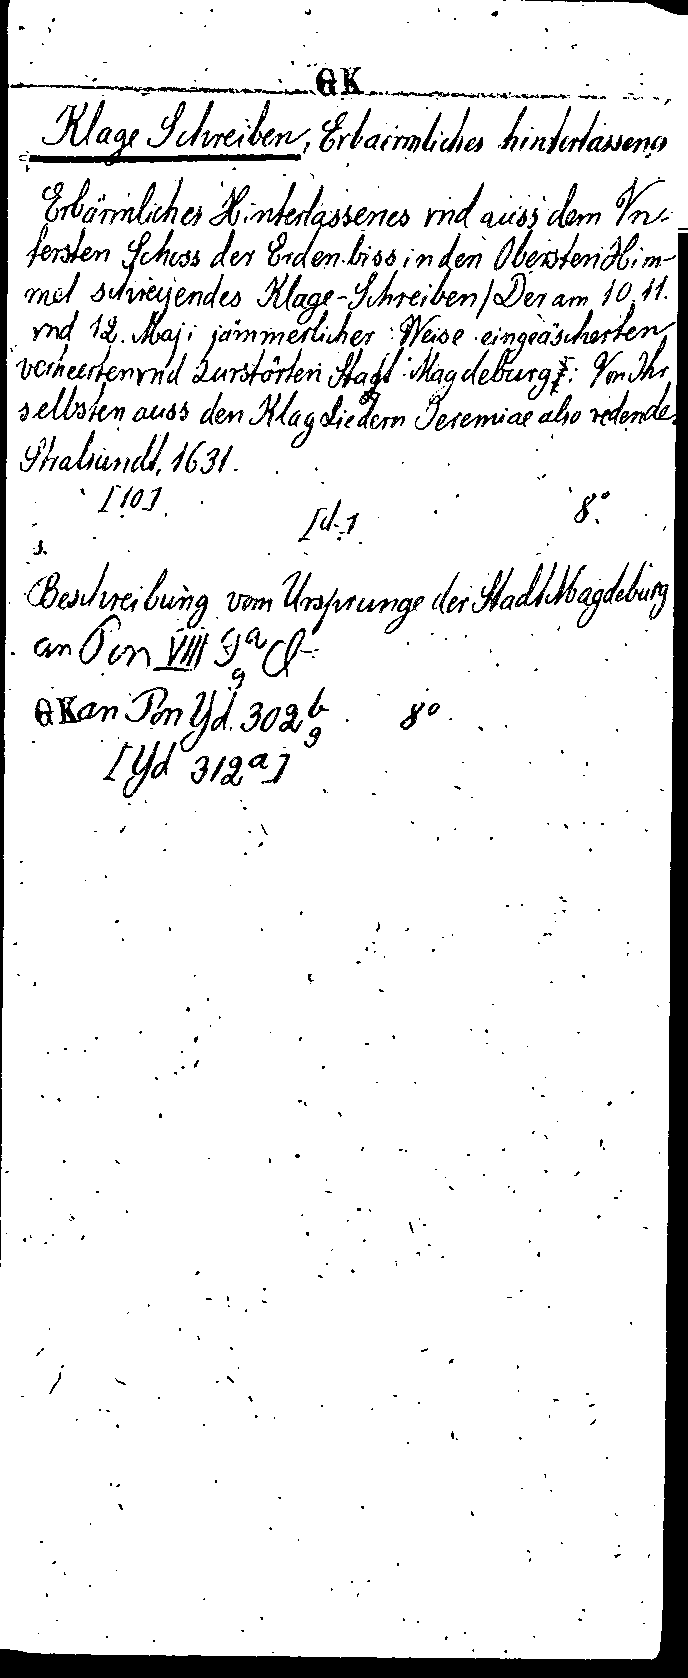 GK
Klage Schreiben, Erbärmliches hinterlassenes
Erbärmliches Hinterlassenes vnd auss dem Vn-
tersten Schoss der Erden biss in den Obersten Him-
mel schreyendes Klage-Schreiben / Der am 10. 11.
vnd 12. Maji jämmerlicher Weise eingeäscherten
verheerten vnd zurstörten Stadt Magdeburg: Von Ihr
selbsten auss den Klagliedern Jeremiae also redende.
Stralsundt, 1631.
[10] [d.] 8°
s.
Beschreibung vom Ursprunge der Stadt Magdeburg
an Pon VIII g
GK an Pon Yd 302 b g 8°
[Yd 312 a]